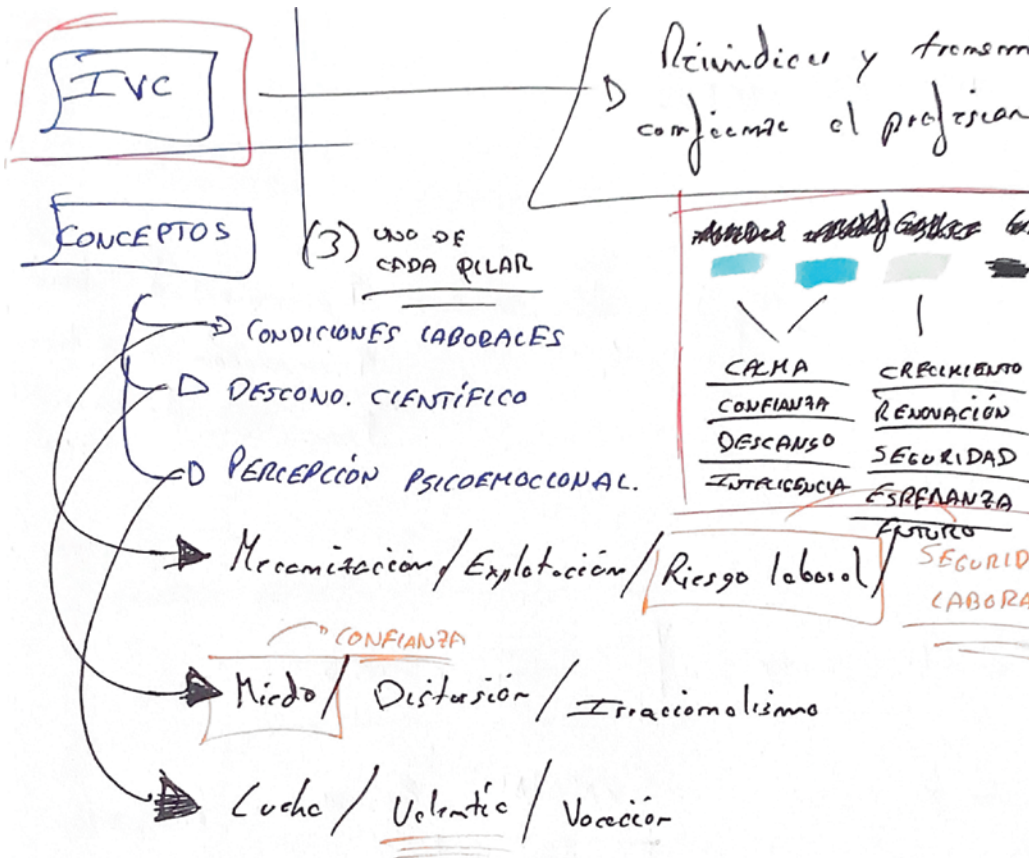 IVC
Reivindicar y transm
confianza al profesion
CONCEPTOS
(3) UNO DE
CADA PILAR
CONDICIONES LABORALES
DESCONO. CIENTÍFICO
PERCEPCIÓN PSICOEMOCIONAL.
CALMA
CONFIANZA
DESCANSO
INTELIGENCIA
CRECIMIENTO
RENOVACIÓN
SEGURIDAD
ESPERANZA
FUTURO
Mecanización / Explotación / Riesgo laboral /
SEGURID
LABORA
CONFIANZA
Miedo / Distorsión / Irracionalismo
Lucha / Valentía / Vocación